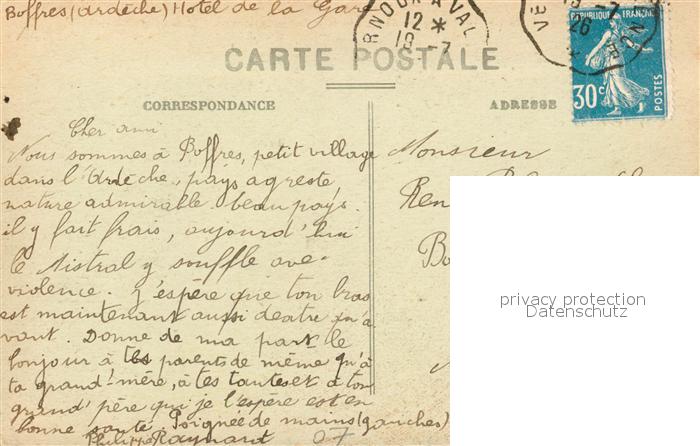 Boffres (ardèche) Hotel de la Gare
VAL
12 *
18 -7
26
REPUBLIQUE FRANÇAISE
30c
POSTES
CARTE POSTALE
CORRESPONDANCE
ADRESSE
Cher ami
Nous sommes à Boffres, petit village
dans l'Ardèche, pays agreste,
nature admirable. beau pays.
il y fait frais, aujourd'hui
le Mistral y souffle avec
violence. J'espère que ton bras
est maintenant aussi dextre qu'a
vant. Donne de ma part le
bonjour à tes parents de même qu'à
ta grand'-mère, à tes tantes et à ton
grand'père qui je l'espère est en
bonne santé. Poignée de mains (gauches)
Philippe Raynard
07
Monsieur
Ren
Bo
privacy protection
Datenschutz